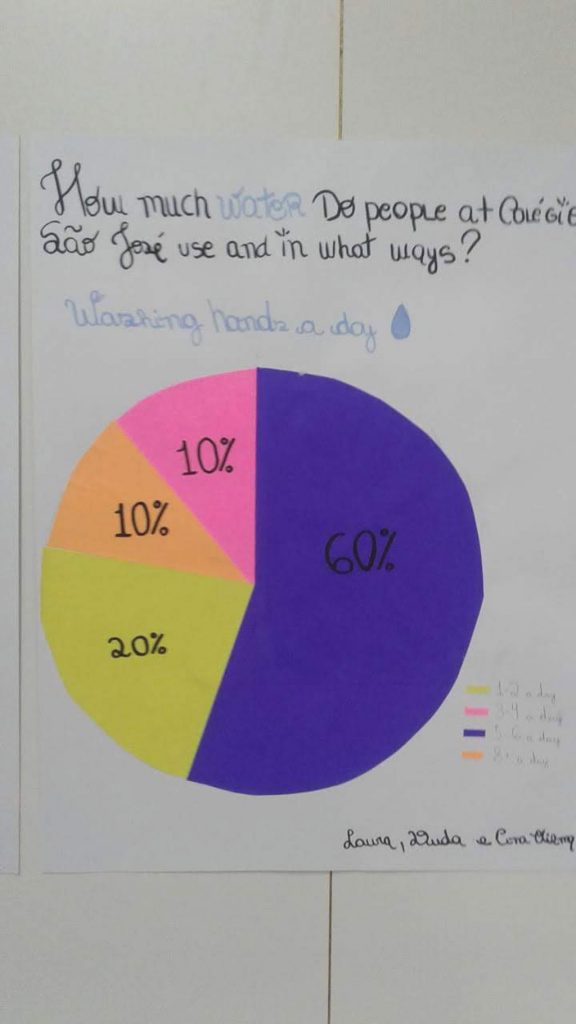 How much water Do people at Colégio
São José use and in what ways?
Washing hands a day
10%
10%
60%
20%
1-2 a day
3-4 a day
5-6 a day
8+ a day
Laura, Duda e Cora